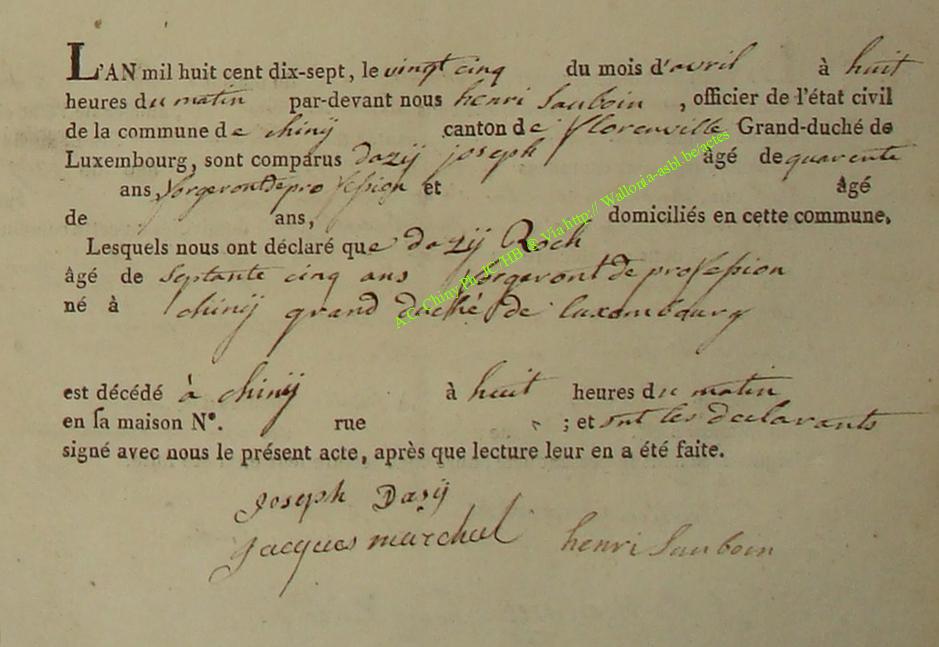 L'AN mil huit cent dix-sept, le vingt cinq du mois d'avril à huit
heures du matin par-devant nous henri Sauboin , officier de l'état civil
de la commune de chinÿ canton de florenville Grand-duché de
Luxembourg, sont comparus dazÿ joseph âgé de quarente
ans, forgeront de profession et âgé
de ans, domiciliés en cette commune.
Lesquels nous ont déclaré que dazÿ Roch
âgé de septante cinq ans forgeront de profession
né à chinÿ grand duché de luxembourg
est décédé à chinÿ à huit heures du matin
en sa maison N°. rue ; et ont les declarants
signé avec nous le présent acte, après que lecture leur en a été faite.
Joseph Dazÿ
jacques marchal henri Sauboin
A.C. Chiny Ph JC/HB @ Via http:// Wallonia-asbl.be/actes